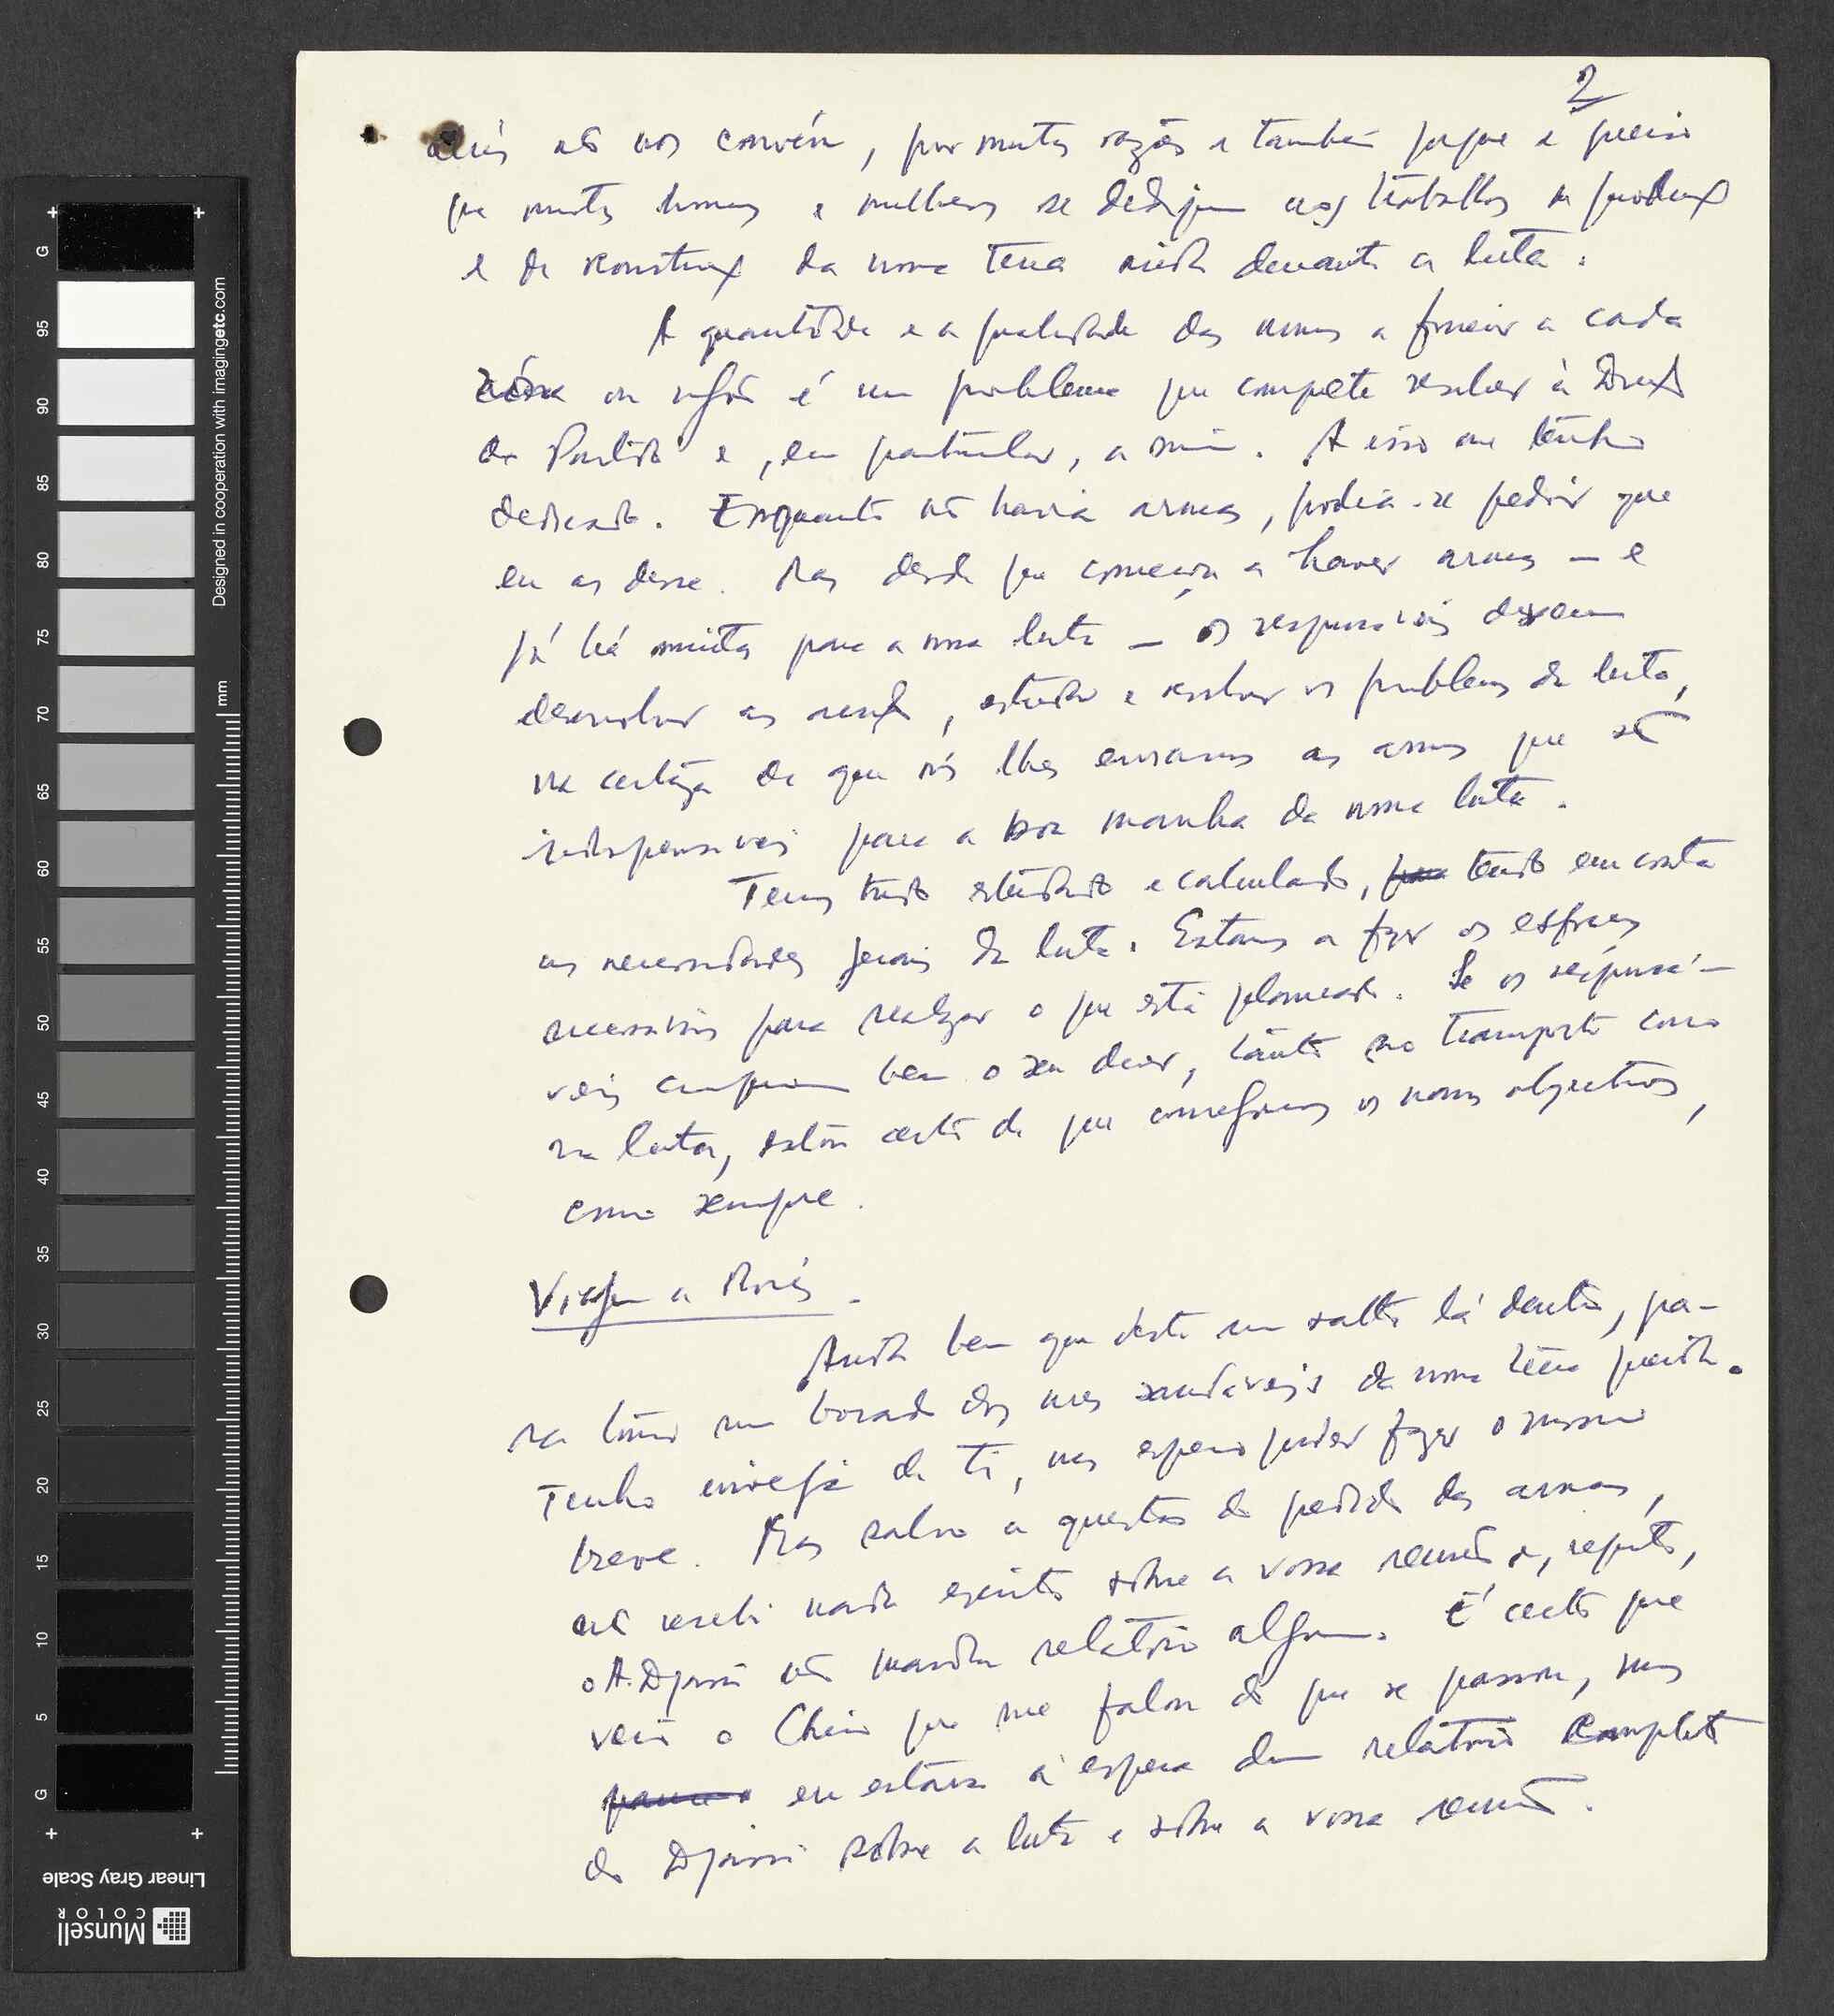 2
aliás não nos convém, por muitas razões e também porque é preciso
que muitos homens e mulheres se dediquem aos trabalhos da produção
e de reconstrução da nossa terra ainda durante a luta.
A quantidade e a qualidade das armas a fornecer a cada
zona ou região é um problema que compete resolver à Direcção
do Partido e, em particular, a mim. A isso me tenho
dedicado. Enquanto não havia armas, podia-se pedir que
eu as desse. Mas desde que começou a haver armas — e
já há muitas para a nossa luta — os responsáveis devem
desenvolver as acções, estudar e resolver os problemas da luta,
na certeza de que nós lhes enviamos as armas que são
indispensáveis para a boa marcha da nossa luta.
Temos tudo estudado e calculado, tendo em conta
as necessidades gerais da luta. Estamos a fazer os esforços
necessários para realizar o que está planeado. Se os responsá-
veis cumprirem bem o seu dever, tanto no transporte como
na luta, estou certo de que conseguiremos os nossos objectivos,
como sempre.
Viagem a Morés.
Ainda bem que deste um salto lá dentro, pa-
ra tomar um bocado dos ares saudáveis da nossa terra querida.
Tenho inveja de ti, mas espero poder fazer o mesmo
breve. Mas salvo a questão do pedido das armas,
não recebi nada escrito sobre a vossa reunião e, repito,
o A. Djassi não mandou relatório algum. É certo que
veio o Chico que me falou do que se passou, mas
eu estava à espera dum relatório completo
do Djassi sobre a luta e sobre a vossa reunião.
Designed in cooperation with imagingetc.com
mm
G
95
90
85
80
75
70
65
60
55
50
45
40
35
30
25
20
15
10
5
G
Linear Gray Scale
Munsell
COLOR